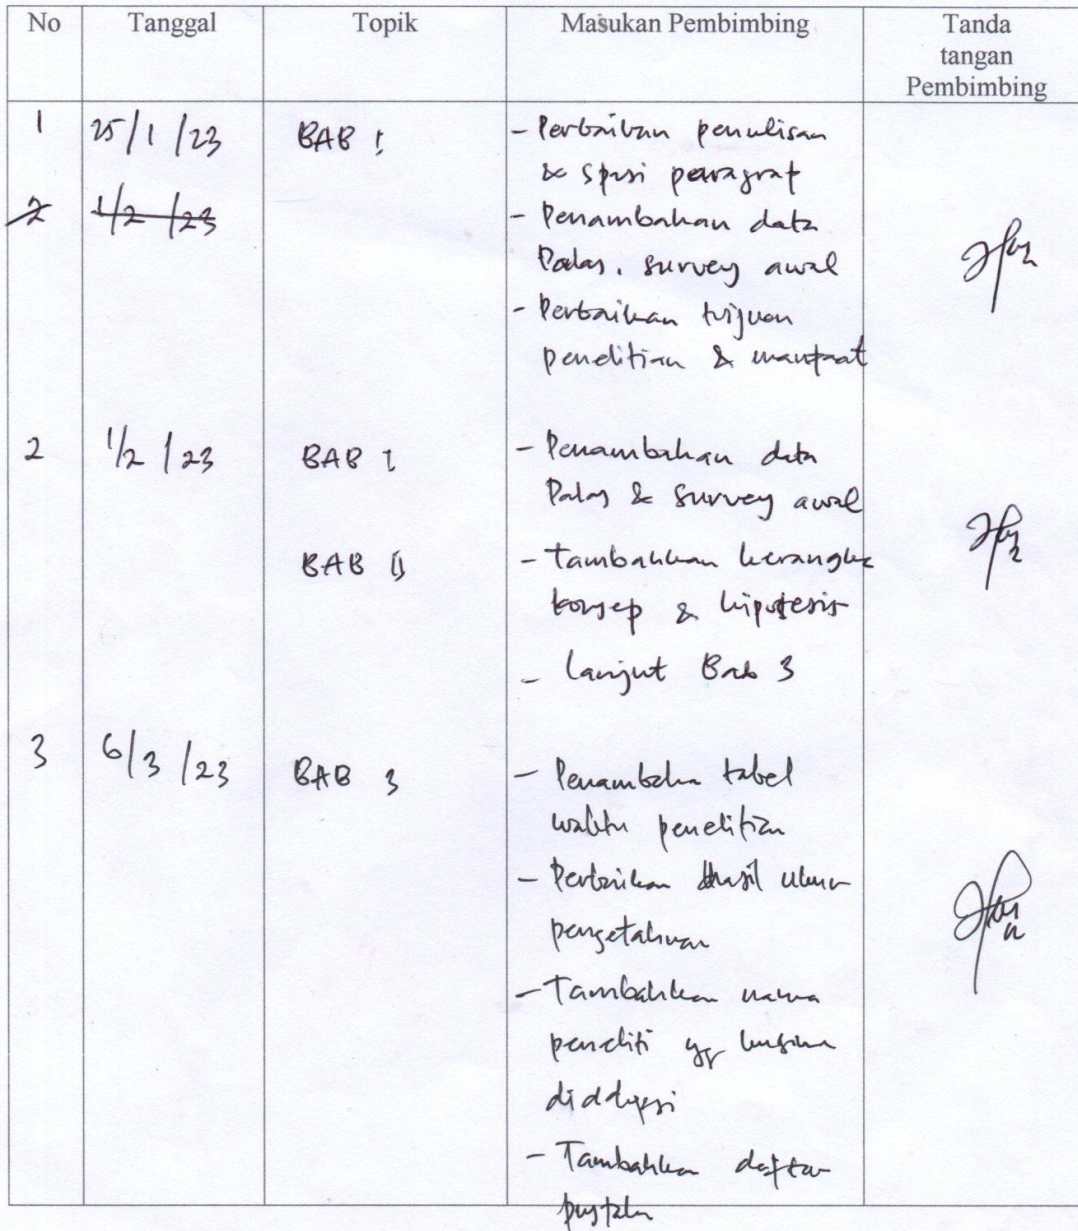 No Tanggal Topik Masukan Pembimbing Tanda
tangan
Pembimbing
1 25/1/23 BAB I - Perbaikan penulisan
& spasi paragraf
2 1/2/23 - Penambahan data
survey awal
- Perbaikan tujuan
penelitian & manfaat
2 1/2/23 BAB I - Penambahan data
& survey awal
BAB II - Tambahkan kerangka
konsep & hipotesis
- Lanjut Bab 3
3 6/3/23 BAB 3 - Penambahan tabel
waktu penelitian
- Perbaikan hasil ukur
pengetahuan
- Tambahkan nama
peneliti yg
- Tambahkan daftar
pustaka